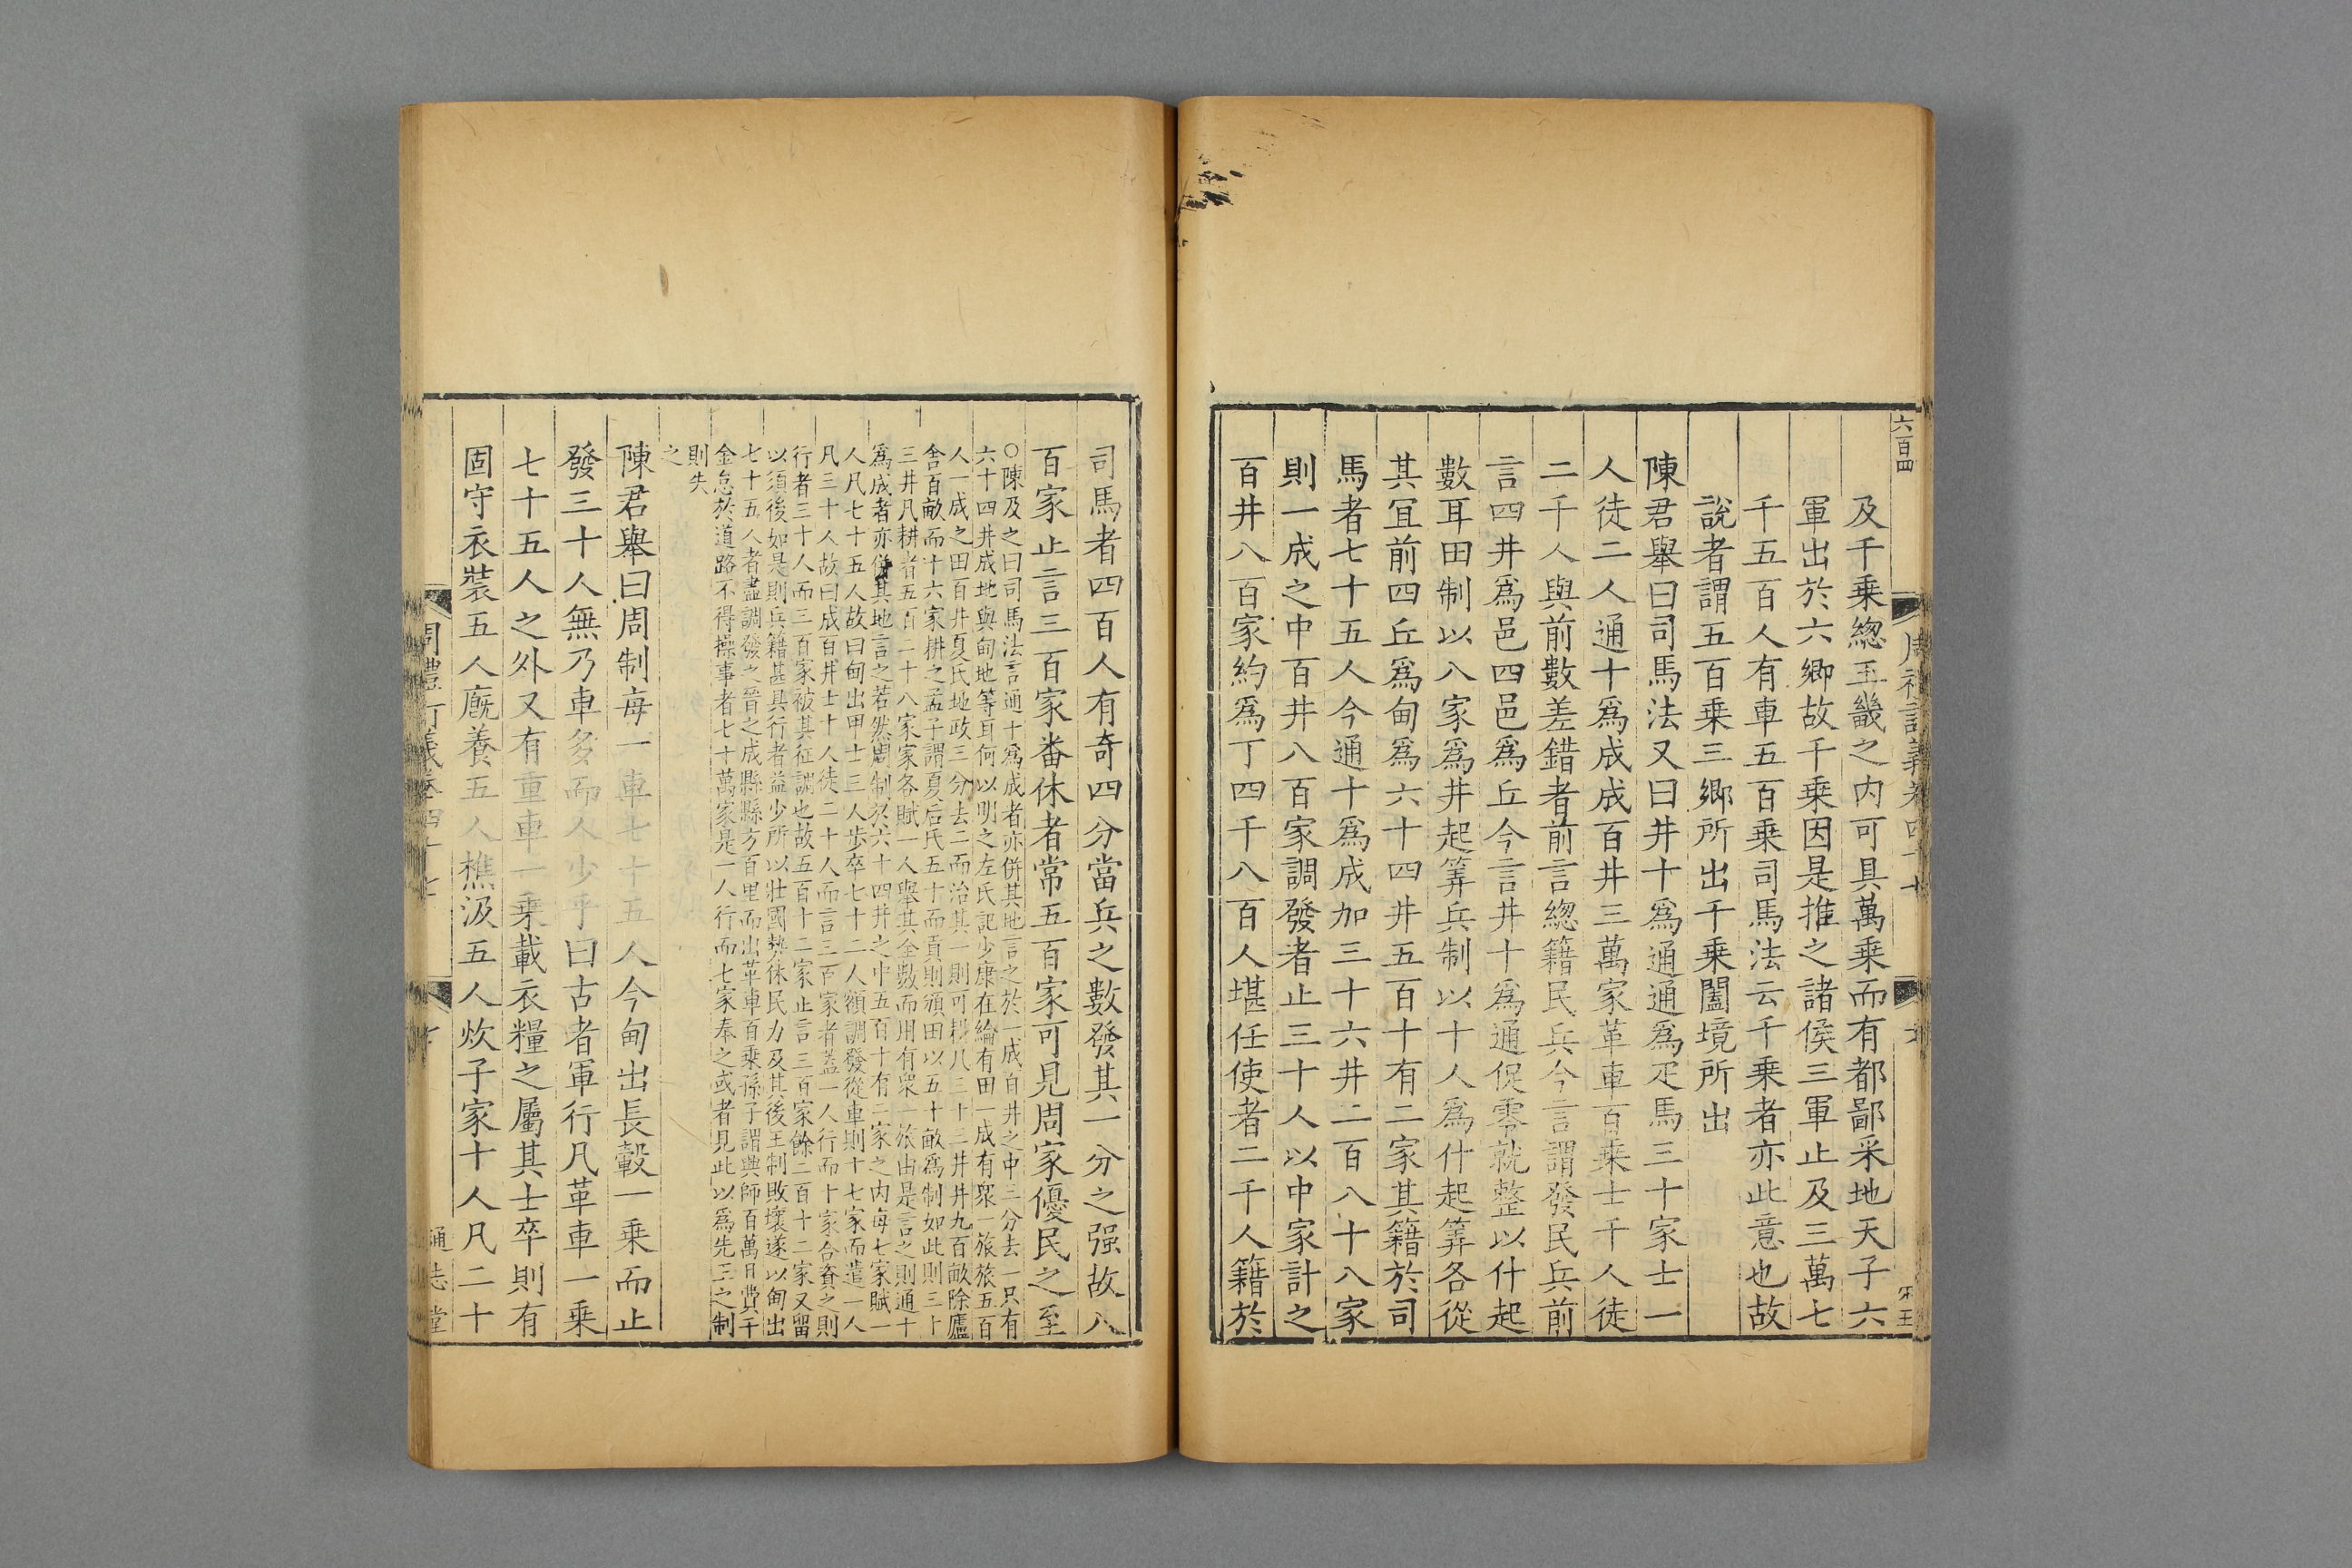 六百四
及千乗緫王畿之内可具萬乗而有都鄙采地天子六
軍出於六鄉故千乗因是推之諸侯三軍止及三萬七
千五百人有車五百乗司馬法云千乗者亦此意也故
說者謂五百乗三鄉所出千乗闔境所出
陳君舉曰司馬法又曰井十爲通通爲疋馬三十家士一
人徒二人通十爲成成百井三萬家革車百乗士千人徒
二千人與前數差錯者前言緫籍民兵今言謂發民兵前
言四井爲邑四邑爲丘今言井十爲通促零就整以什起
數耳田制以八家爲井起筭兵制以十人爲什起筭各從
其冝前四丘爲甸爲六十四井五百十有二家其籍於司
馬者七十五人今通十爲成加三十六井二百八十八家
則一成之中百井八百家調發者止三十人以中家計之
百井八百家約爲丁四千八百人堪任使者二千人籍於
司馬者四百人有奇四分當兵之數發其一分之强故八
百家止言三百家畨休者常五百家可見周家優民之至
○陳及之曰司馬法言通十爲成者亦併其地言之於一成百井之中三分去一只有
六十四井成地與甸地等耳何以明之左氏記少康在綸有田一成有衆一旅旅五百
人一成之田百井夏氏地政三分去二而治其一則可耕八三十三井井九百畝除廬
舎百畝而十六家耕之孟子謂夏后氏五十而貢則頒田以五十畝爲制如此則三十
三井凡耕者五百二十八家家各賦一人舉其全數而用有衆一旅由是言之則通十
爲成者亦併其地言之若然周制於六十四井之中五百十有二家之内每七家賦一
人凡七十五人故曰甸出甲士三人歩卒七十二人額調發從車則十七家而遣一人
凡三十人故曰成百井士十人徒二十人而言三百家者蓋一人行而十家合資之則
行者三十人而三百家被其征調也故五百十二家止言三百家餘二百十二家又留
以須後如是則兵籍甚具行者益少所以壮國勢休民力及其後王制敗壞遂以甸出
七十五人者盡調發之晉之成縣縣方百里而出革車百乗孫子謂興師百萬日費千
金怠於道路不得操事者七十萬家是一人行而七家奉之或者見此以爲先王之制
則失
之
陳君舉曰周制每一車七十五人今甸出長轂一乗而止
發三十人無乃車多而人少乎曰古者軍行凡革車一乗
七十五人之外又有重車一乗載衣糧之屬其士卒則有
固守衣裝五人廐養五人樵汲五人炊子家十人凡二十
通志堂